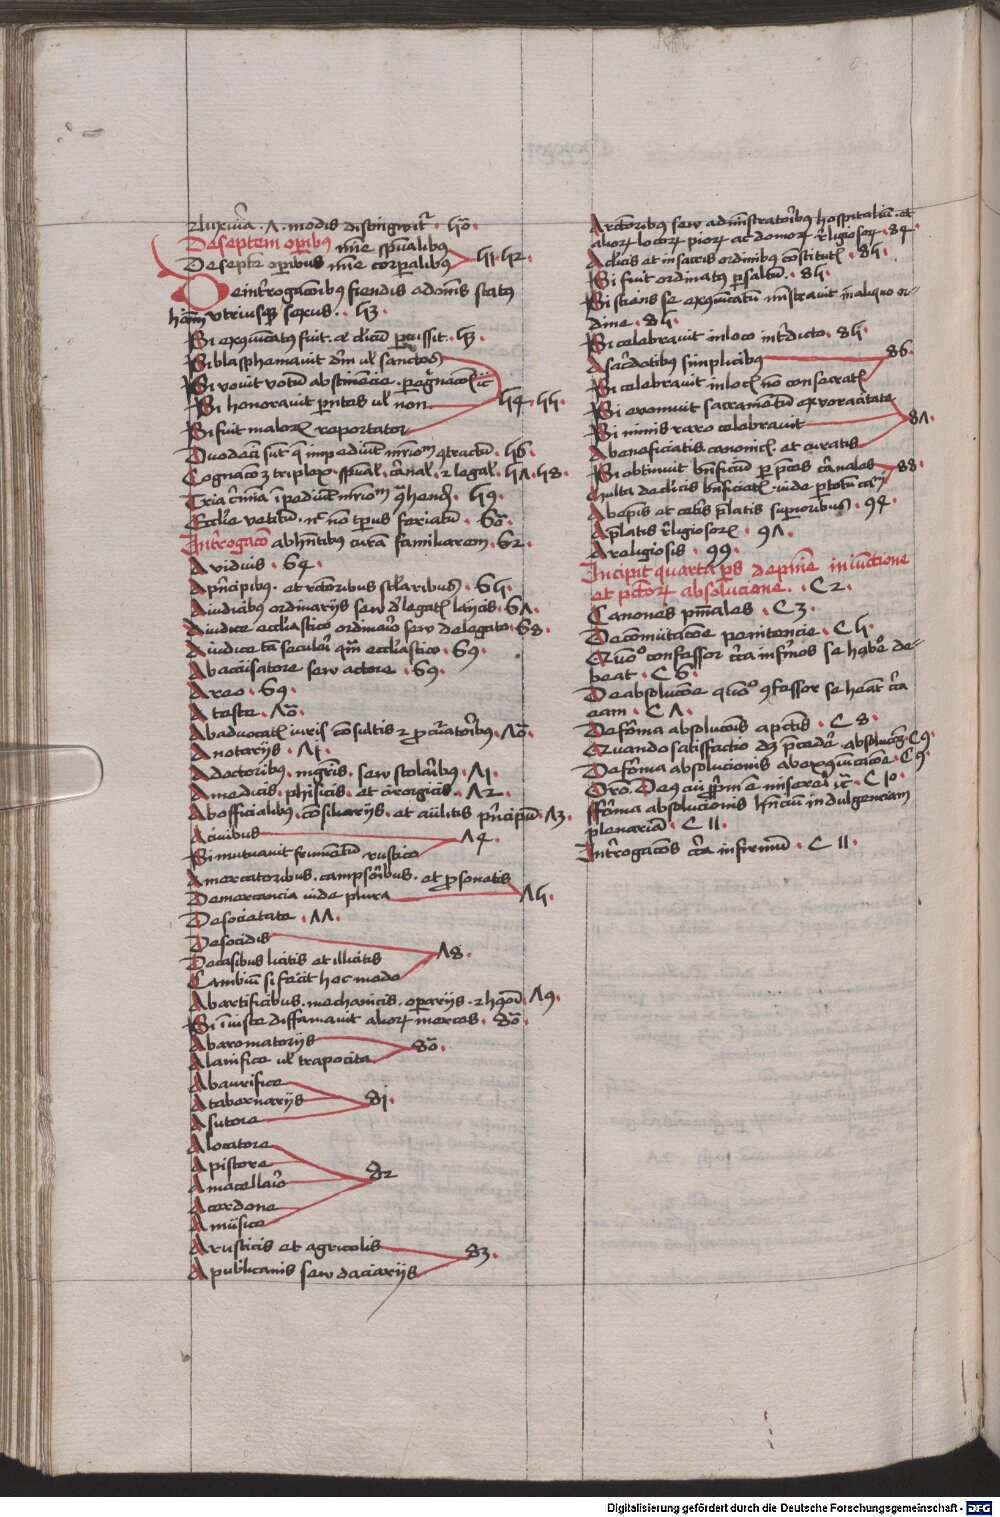 2 luxuria · 7 · modis distingwitur · 50 ·
De septem operibus mie spualibus
De septe operibus mie corpalibus 51 · 52 ·
De introgacoibus fiendis ad omnis status
hoim utriusque sexus · 53 ·
Si excommunicatus fuit · et clicu percussit · 53 ·
Si blasphemavit dm ul sanctos
Si vovit votum abstinencie · pegnacois
Si honoravit parentes ul non 54 · 55 ·
Si fuit malorum reportator
Duodeci sunt que impediunt mrimonium contractum · 56 ·
Cognaco 3 triplex · spual · carnal · 2 legal · 57 · 58 ·
Tria crimina impediunt mrimonium · 59 ·
Ecclie vetitum · nec non tempus feriatum · 60 ·
Introgaco ab habentibus curam familiarem · 62 ·
A viduis · 64 ·
A principibus · et rectoribus sclaribus · 65 ·
A iudicibus ordinariis sew delegatis laycis · 67 ·
A iudice eccliastico ordinario sew delegato · 68 ·
A iudice tam seculari quam eccliastico · 69 ·
Ab accusatore sew actore · 69 ·
A reo · 69 ·
A teste · 70 ·
Ab advocatis iuris consultis 2 procuratoribus · 70 ·
A notariis · 71 ·
A doctoribus · mgris · sew scolaribus · 71 ·
A medicis · phisicis · et cirorgicis · 72 ·
Ab officialibus · consiliariis · et aulitis principum · 73 ·
A civibus 74 ·
Si mutuavit frumentum rustico
A mercatoribus · campsoribus · et personetis
De mercancia vide plura 75 ·
De societate · 77 ·
De socidis
De casibus licitis et illicitis 78 ·
Cambium si fecit hoc modo
Ab artificibus · mechanicis · operariis · 2 79 ·
Si iniuste diffamavit aliorum merces · 80 ·
Ab aromatoriis 80 ·
A lanifice ul trapocita
Ab aurifice
A tabernariis 81 ·
A sutore
A locatore
A pistore
A macellario 82
A cerdone
A musico
A rusticis et agricolis 83 ·
A publicanis sew daciariis
A rectoribus sew administratoribus hospitalium · et
aliorum locorum piorum ac domorum religiosorum · 84 ·
A clicis et in sacris ordinibus constitutis · 85 ·
Si fuit ordinatus per saltum · 85 ·
Si sciens se excommunicatum ministravit in aliquo or-
dine · 85 ·
Si celebravit in loco interdicto · 85 ·
A sacerdotibus simplicibus 86 ·
Si celebravit in locis non consecratis
Si evomuit sacramentum ex voracitate
Si nimis raro celebravit 87 ·
A beneficiatis canonicis · et curatis
Si obtinuit beneficium per preces carnales 88 ·
Multa de clicis beneficiatis · vide per totum
Ab epis et ceteris prelatis superioribus · 94 ·
A prelatis religiosorum · 97 ·
A religiosis · 99 ·
Incipit quarta pars de penitencie iniunctione
et peccatorum absolucione · C 2 ·
Canones penitenciales · C 3 ·
De commutacone penitencie · C 5 ·
Quomodo confessor circa infirmos se habere de-
beat · C 6 ·
De absolucone quomodo confessor se habeat circa
eam · C 7 ·
De forma absolucois a peccatis · C 8 ·
Quando satisfactio debet precedere absolucionem · C 9 ·
De forma absolucionis ab excommunicacone · C 9 ·
Oro · Deus cui proprium e misereri · C 10 ·
Forma absolucionis habencium indulgenciam
plenariam · C 11 ·
Introgacoes circa infirmum · C 11 ·
Digitalisierung gefördert durch die Deutsche Forschungsgemeinschaft - DFG